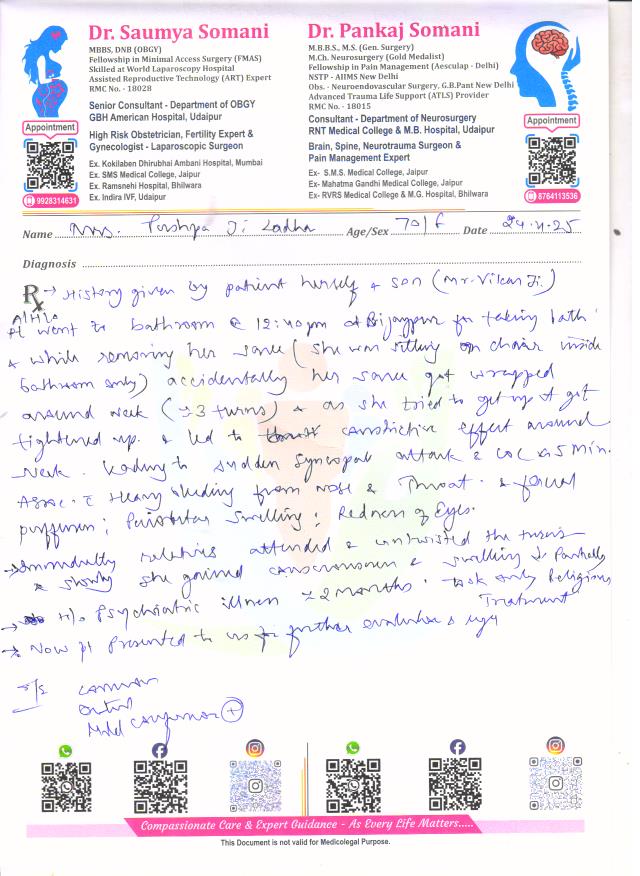 Dr. Saumya Somani
MBBS, DNB (OBGY)
Fellowship in Minimal Access Surgery (FMAS)
Skilled at World Laparoscopy Hospital
Assisted Reproductive Technology (ART) Expert
RMC No. - 18028
Senior Consultant - Department of OBGY
GBH American Hospital, Udaipur
High Risk Obstetrician, Fertility Expert &
Gynecologist - Laparoscopic Surgeon
Ex. Kokilaben Dhirubhai Ambani Hospital, Mumbai
Ex. SMS Medical College, Jaipur
Ex. Ramsnehi Hospital, Bhilwara
Ex. Indira IVF, Udaipur
Appointment
9928314631
Dr. Pankaj Somani
M.B.B.S., M.S. (Gen. Surgery)
M.Ch. Neurosurgery (Gold Medalist)
Fellowship in Pain Management (Aesculap - Delhi)
NSTP - AIIMS New Delhi
Obs. - Neuroendovascular Surgery, G.B.Pant New Delhi
Advanced Trauma Life Support (ATLS) Provider
RMC No. - 18015
Consultant - Department of Neurosurgery
RNT Medical College & M.B. Hospital, Udaipur
Brain, Spine, Neurotrauma Surgeon &
Pain Management Expert
Ex- S.M.S. Medical College, Jaipur
Ex- Mahatma Gandhi Medical College, Jaipur
Ex- RVRS Medical College & M.G. Hospital, Bhilwara
Appointment
8764113536
Name Mrs. Pushpa Ji Ladha Age/Sex 70/F Date 24.11.25
Diagnosis
Rx → History given by patient herself & son (Mr. Vikas Ji.)
A/H/o
Pt went to bathroom @ 12:40pm at Bijaypur for taking bath
& while removing her saree (she was sitting on chair inside
bathroom only) accidentally her saree got wrapped
around neck (≈3 turns) & as she tried to get up it got
tightened up & led to constrictive effect around
neck. leading to sudden syncopal attack & LOC x 5 min.
Assoc. c Heavy bleeding from nose & Throat. & facial
puffiness; Periorbital swelling; Redness of Eyes.
→ Immediately relatives attended & untwisted the turns
& shortly she gained consciousness & swelling ↓ Partially
→ H/o Psychiatric illness ≈2months. took only Religious
Treatment
→ Now pt presented to us for further evaluation & mgt
O/E conscious
Mild confusion (+)
Compassionate Care & Expert Guidance - As Every Life Matters.....
This Document is not valid for Medicolegal Purpose.